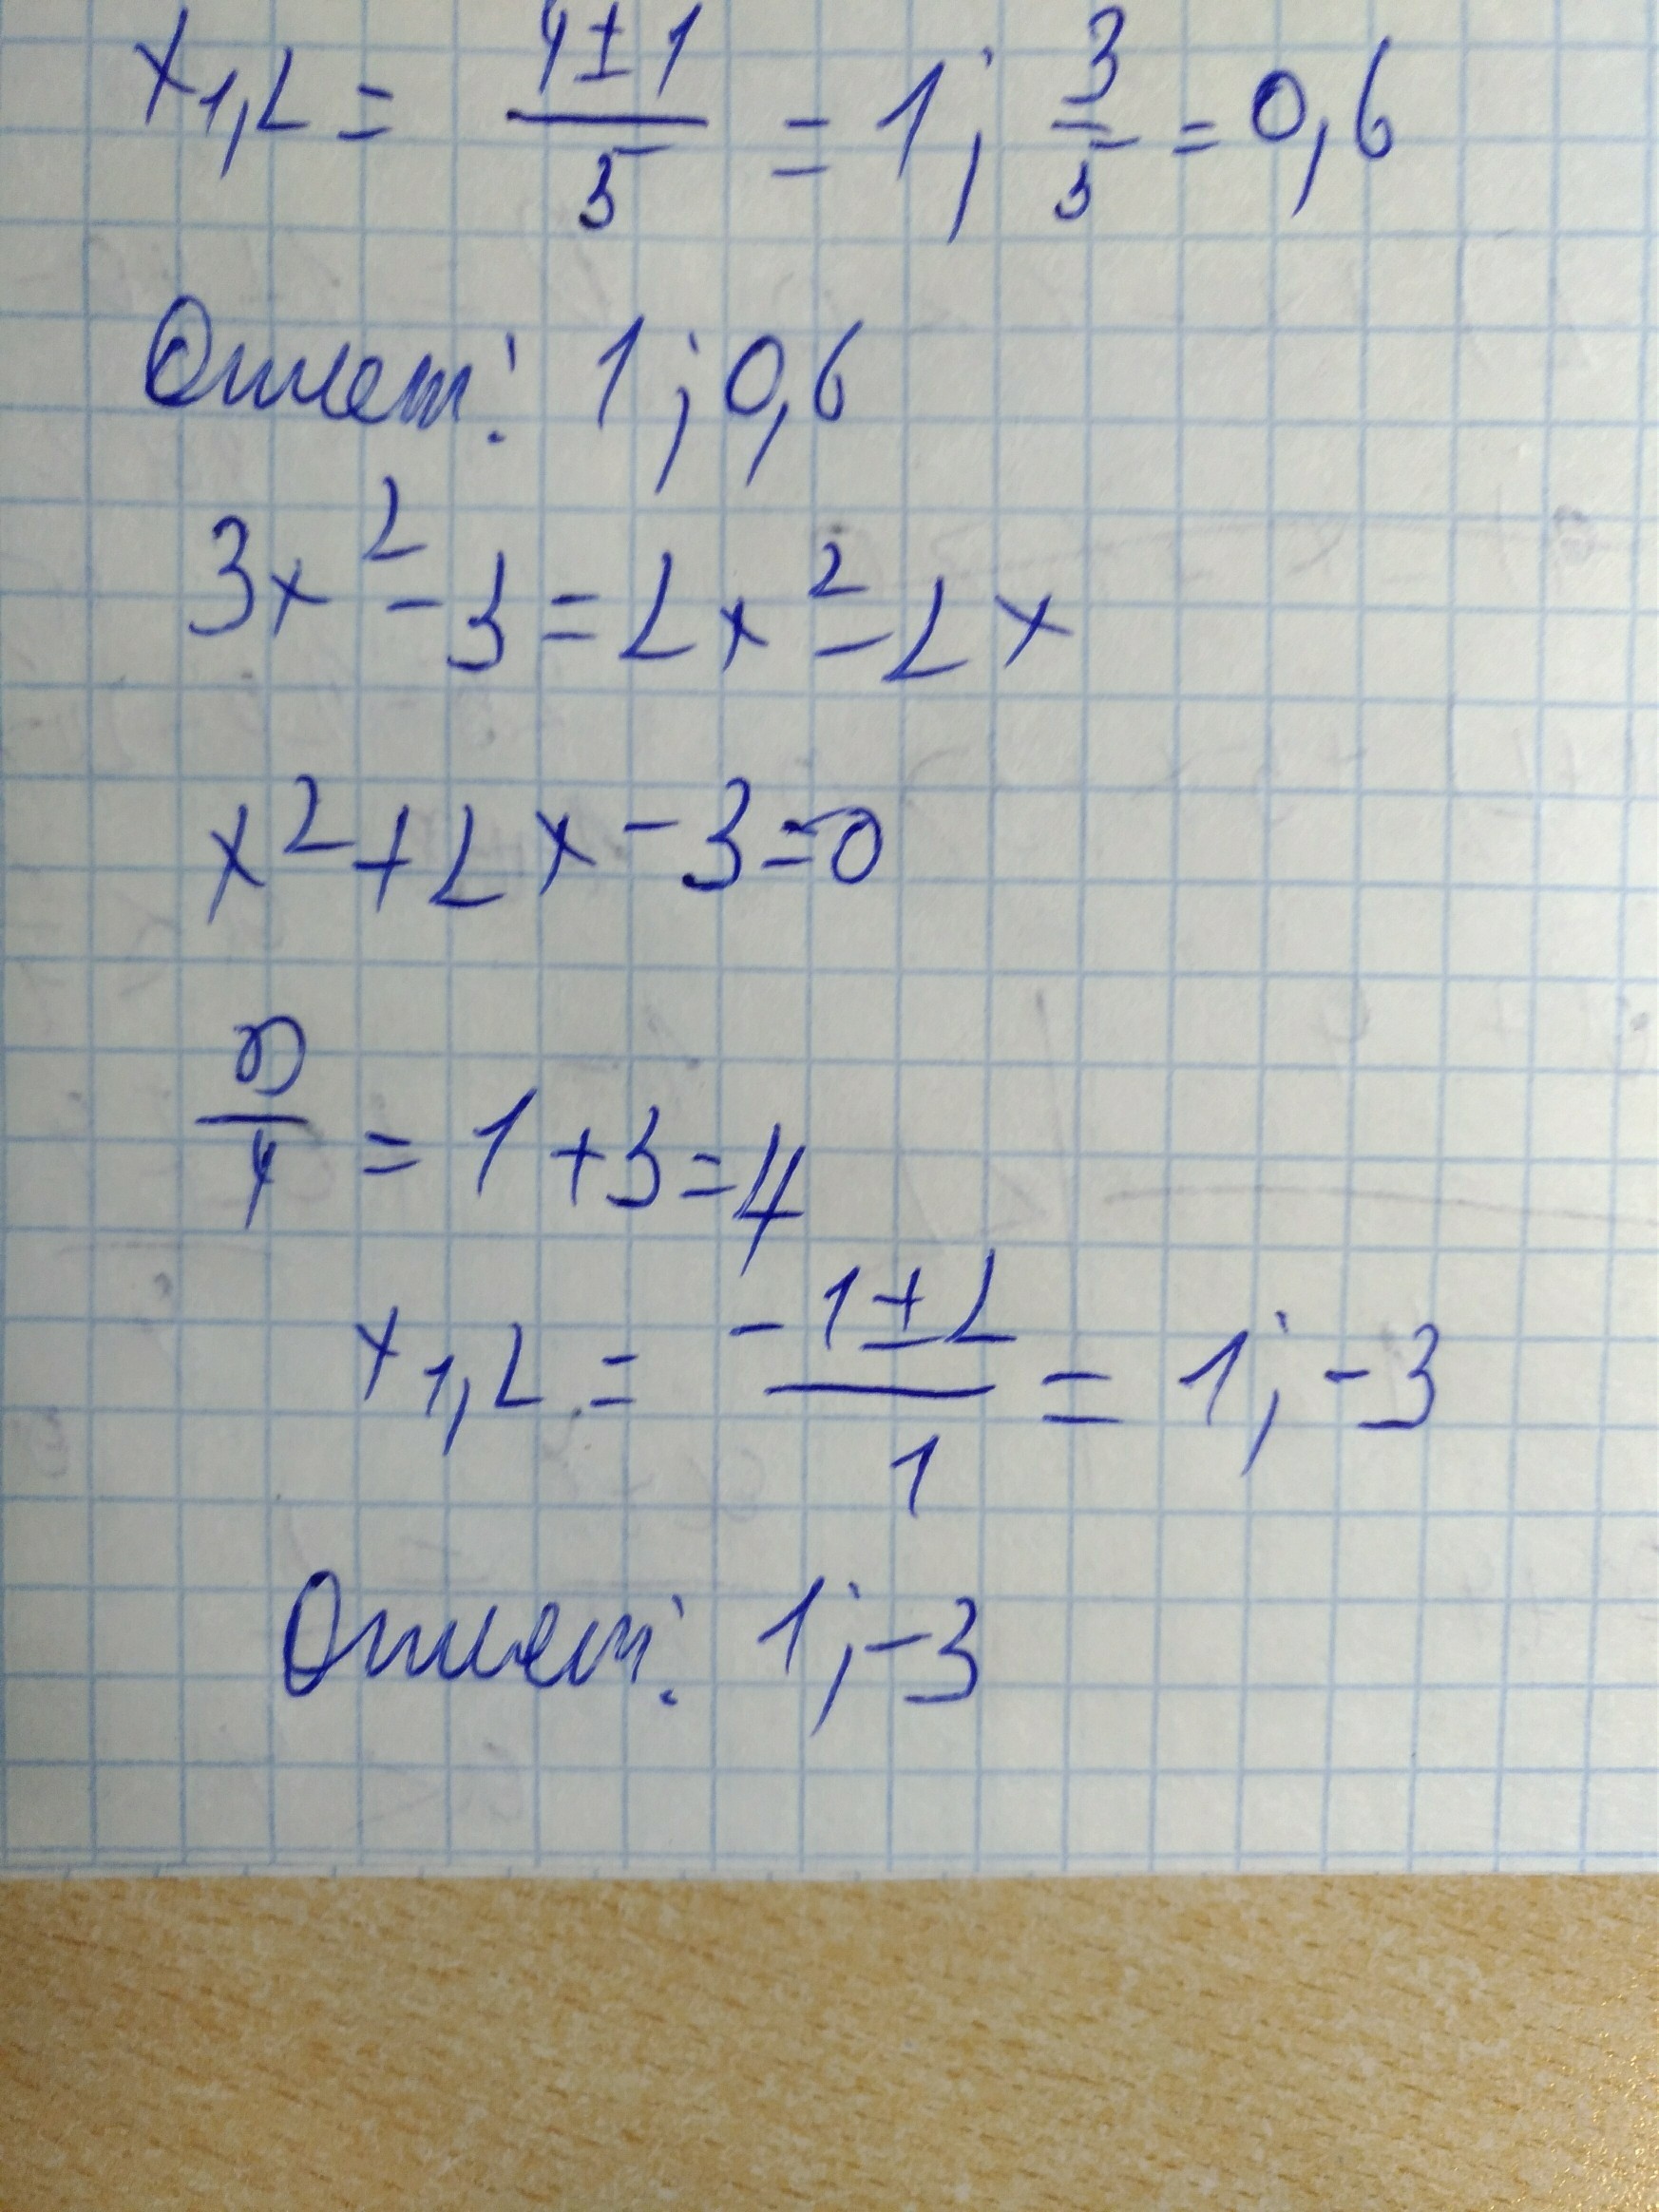 x₁,₂ = (4±1)/5 = 1; 3/5 = 0,6
Ответ: 1; 0,6
3x² - 3 = 2x² - 2x
x² + 2x - 3 = 0
D/4 = 1 + 3 = 4
x₁,₂ = (-1±2)/1 = 1; -3
Ответ: 1; -3